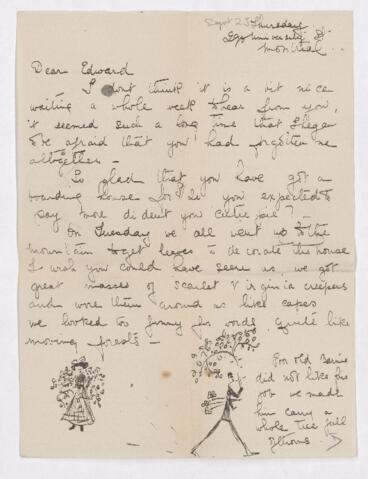 Sept 25 Thursday
University St
Montreal
Dear Edward
I dont think it is a bit nice
waiting a whole week to hear from you,
it seemed such a long time that I began
to be afraid that you had forgotten me
altogether -
So glad that you have got a
boarding house for you expected to
pay more did ent you cutie pie? -
On Tuesday we all went up to the
mountain to get leaves to decorate the house
I wish you could have seen us, we got
great masses of Scarlet Virginia creepers
and wore them around us like capes
we looked too funny for words quite like
moving forests -
Poor old
did not like his
job we made
him carry a
whole tree full